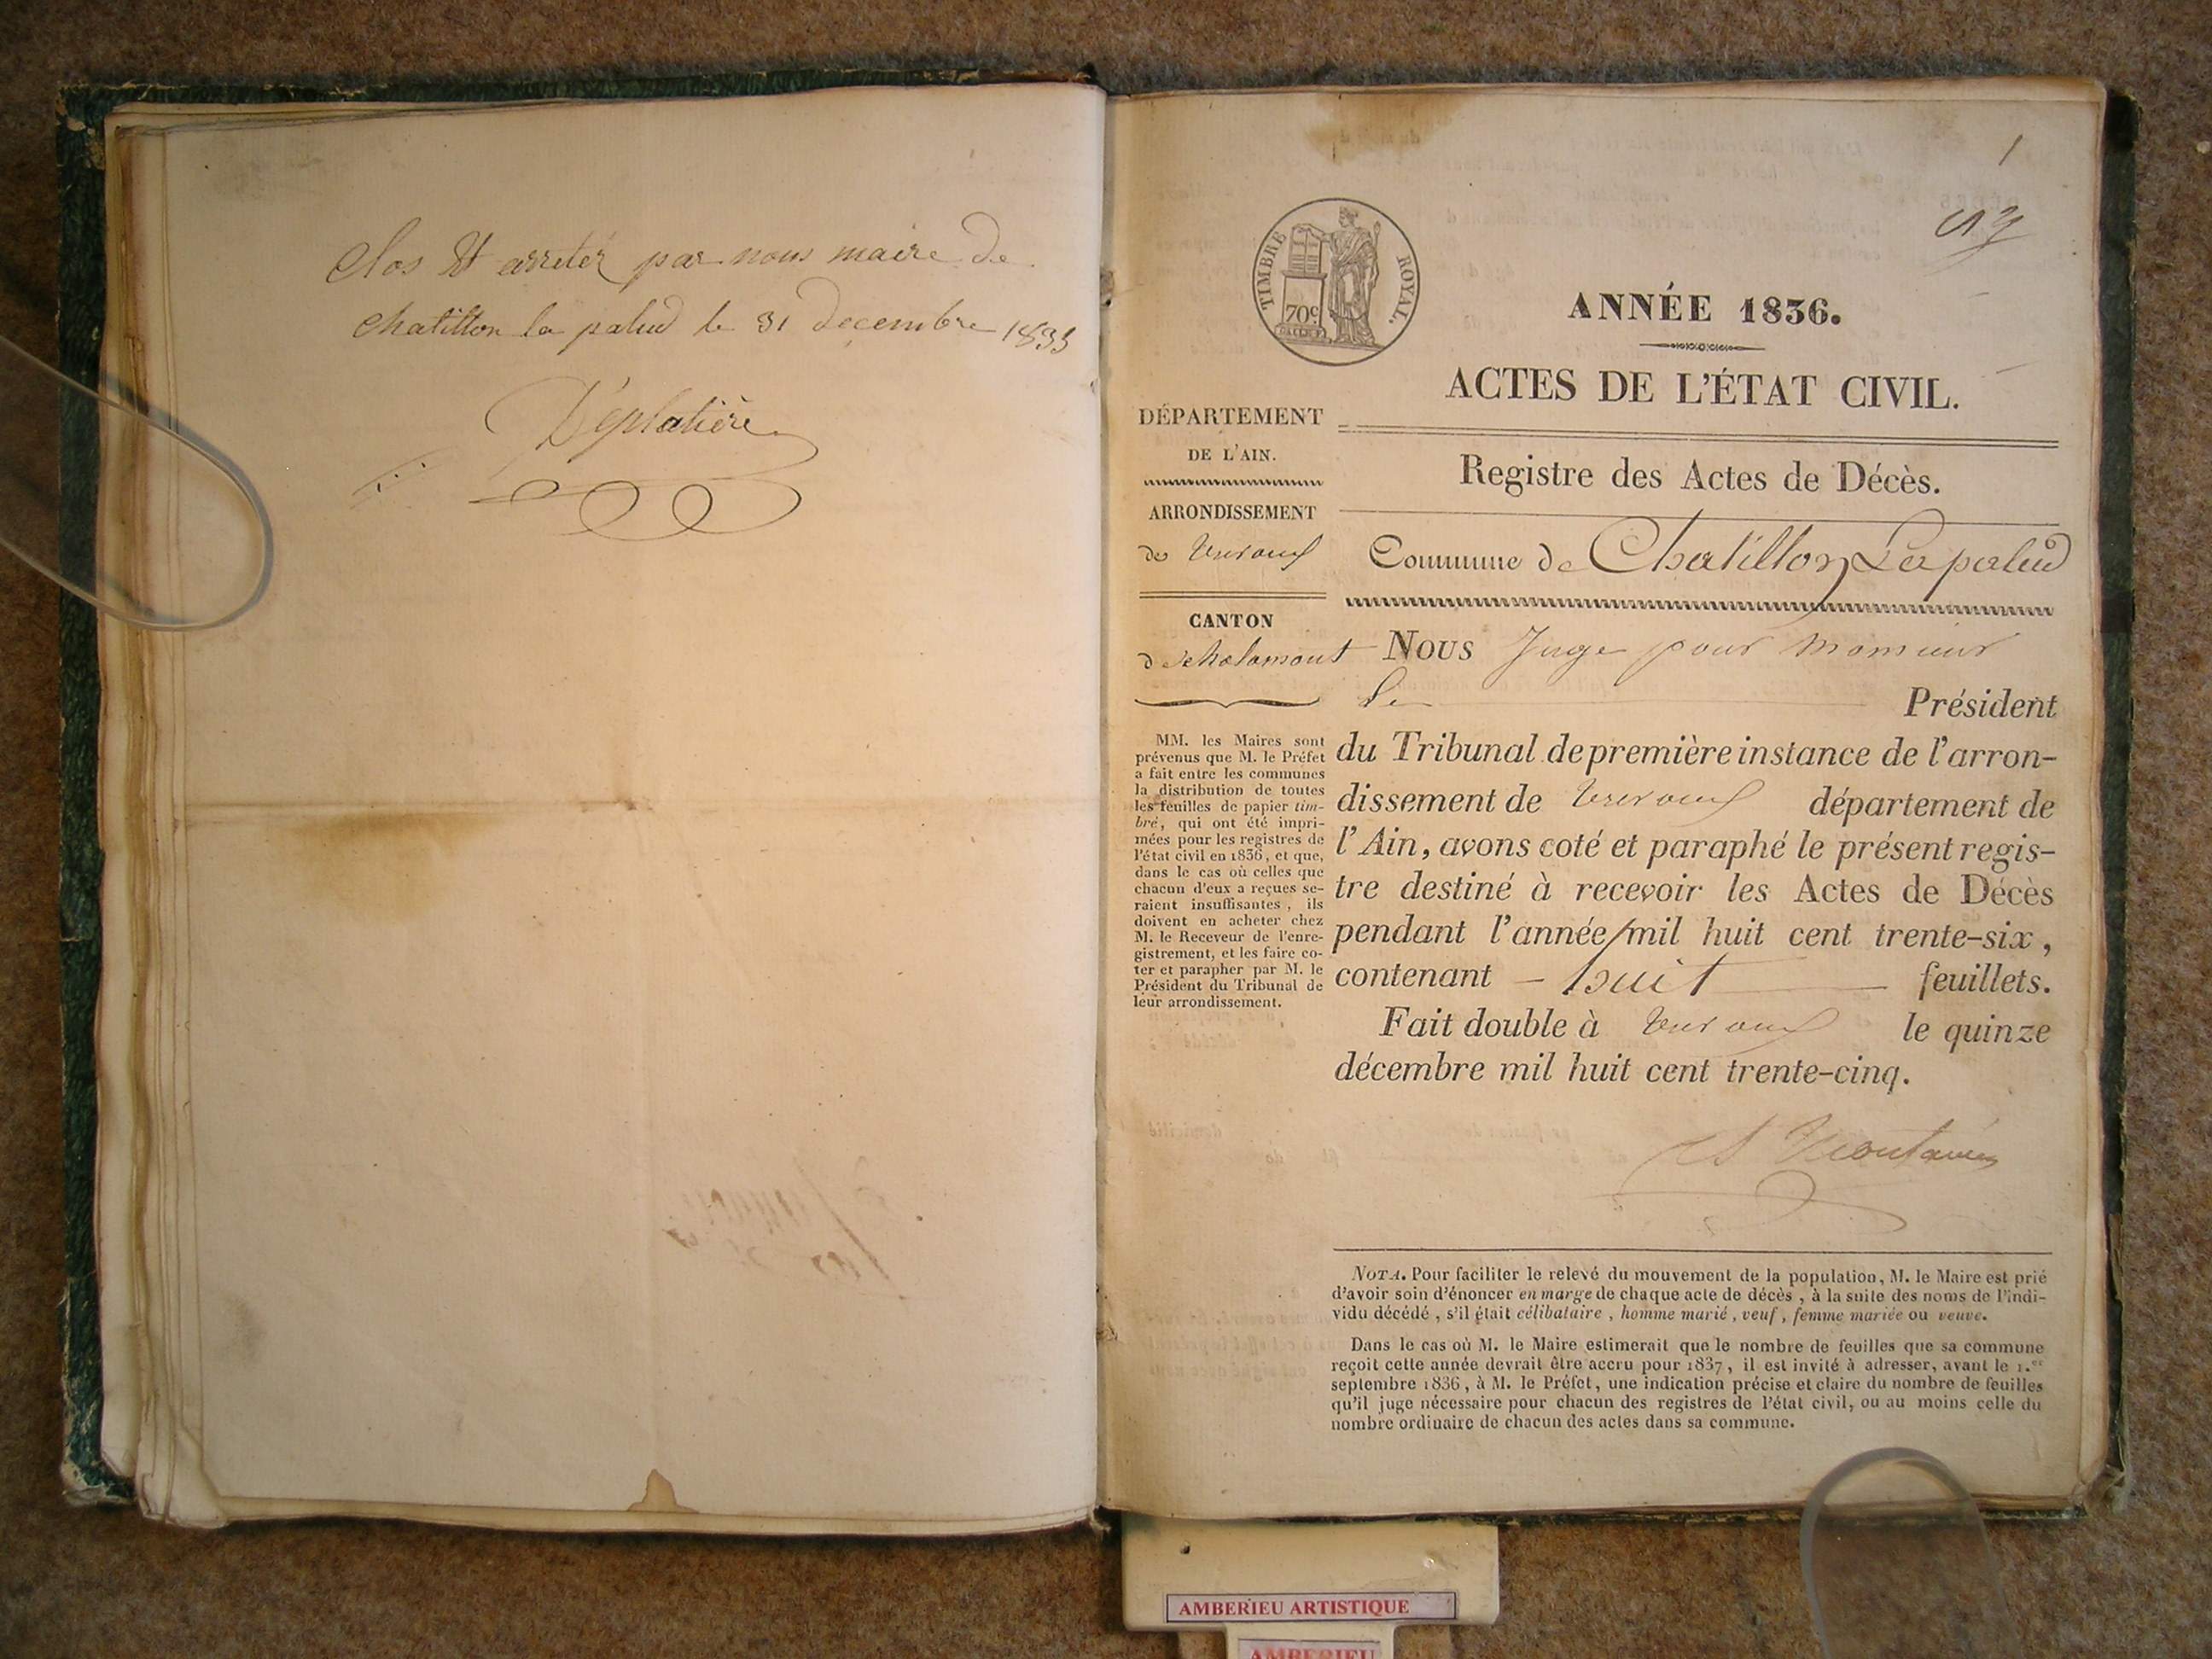 Clos Et arretéz par nous maire de
chatillon la palud le 31 decembre 1835
Déplatière
1
TIMBRE ROYAL.
70c
ANNÉE 1836.
ACTES DE L'ÉTAT CIVIL.
DÉPARTEMENT
DE L'AIN.
ARRONDISSEMENT
de Trevoux
CANTON
de chalamont
MM. les Maires sont
prévenus que M. le Préfet
a fait entre les communes
la distribution de toutes
les feuilles de papier tim-
bré, qui ont été impri-
mées pour les registres de
l'état civil en 1836, et que,
dans le cas où celles que
chacun d'eux a reçues se-
raient insuffisantes, ils
doivent en acheter chez
M. le Receveur de l'enre-
gistrement, et les faire co-
ter et parapher par M. le
Président du Tribunal de
leur arrondissement.
Registre des Actes de Décès.
Commune de Chatillon Lapalud
NOUS Juge pour Monsieur
Le Président
du Tribunal de première instance de l'arron-
dissement de Trevoux département de
l'Ain, avons coté et paraphé le présent regis-
tre destiné à recevoir les Actes de Décès
pendant l'année mil huit cent trente-six,
contenant – huit feuillets.
Fait double à Trevoux le quinze
décembre mil huit cent trente-cinq.
NOTA. Pour faciliter le relevé du mouvement de la population, M. le Maire est prié
d'avoir soin d'énoncer en marge de chaque acte de décès, à la suite des noms de l'indi-
vidu décédé, s'il était célibataire, homme marié, veuf, femme mariée ou veuve.
Dans le cas où M. le Maire estimerait que le nombre de feuilles que sa commune
reçoit cette année devrait être accru pour 1837, il est invité à adresser, avant le 1.er
septembre 1836, à M. le Préfet, une indication précise et claire du nombre de feuilles
qu'il juge nécessaire pour chacun des registres de l'état civil, ou au moins celle du
nombre ordinaire de chacun des actes dans sa commune.
AMBERIEU ARTISTIQUE
AMBERIEU